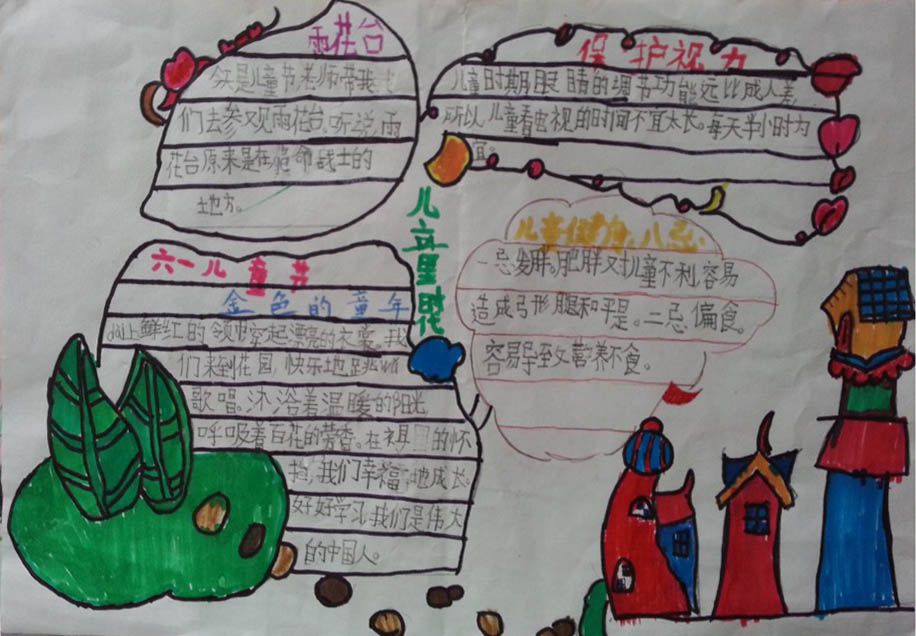 雨花台
是儿童节老师带我
们去参观雨花台。听说,雨
花台原来是在命战士的
地方。
保护视力
儿童时期眼睛的调节功能远比成人差
所以儿童看电视的时间不宜太长。每天半小时为
宜。
儿立里时花
儿童健力八忌:
一忌发胖。肥胖对儿童不利,容易
造成弓形腿和平足。二忌偏食。
容易导致营养不食。
六一儿童节
金色的童年
上鲜红的领巾穿起漂亮的衣裳。我
们来到花园,快乐地跳
歌唱。沐浴着温暖的阳光,
呼吸着百花的芳香。在的怀
抱,我们幸福地成长。
好好学习,我们是伟大
自的中国人。